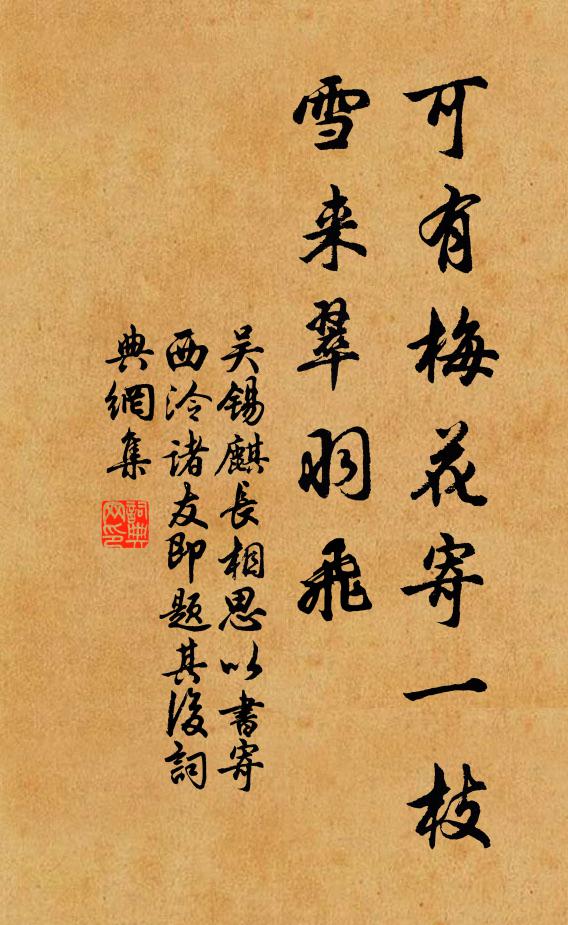 可有梅花寄一枝
雪来翠羽飛
吴锡麒長相思以書寄
西泠诸友即题其後詞
典網集
詞典
网印